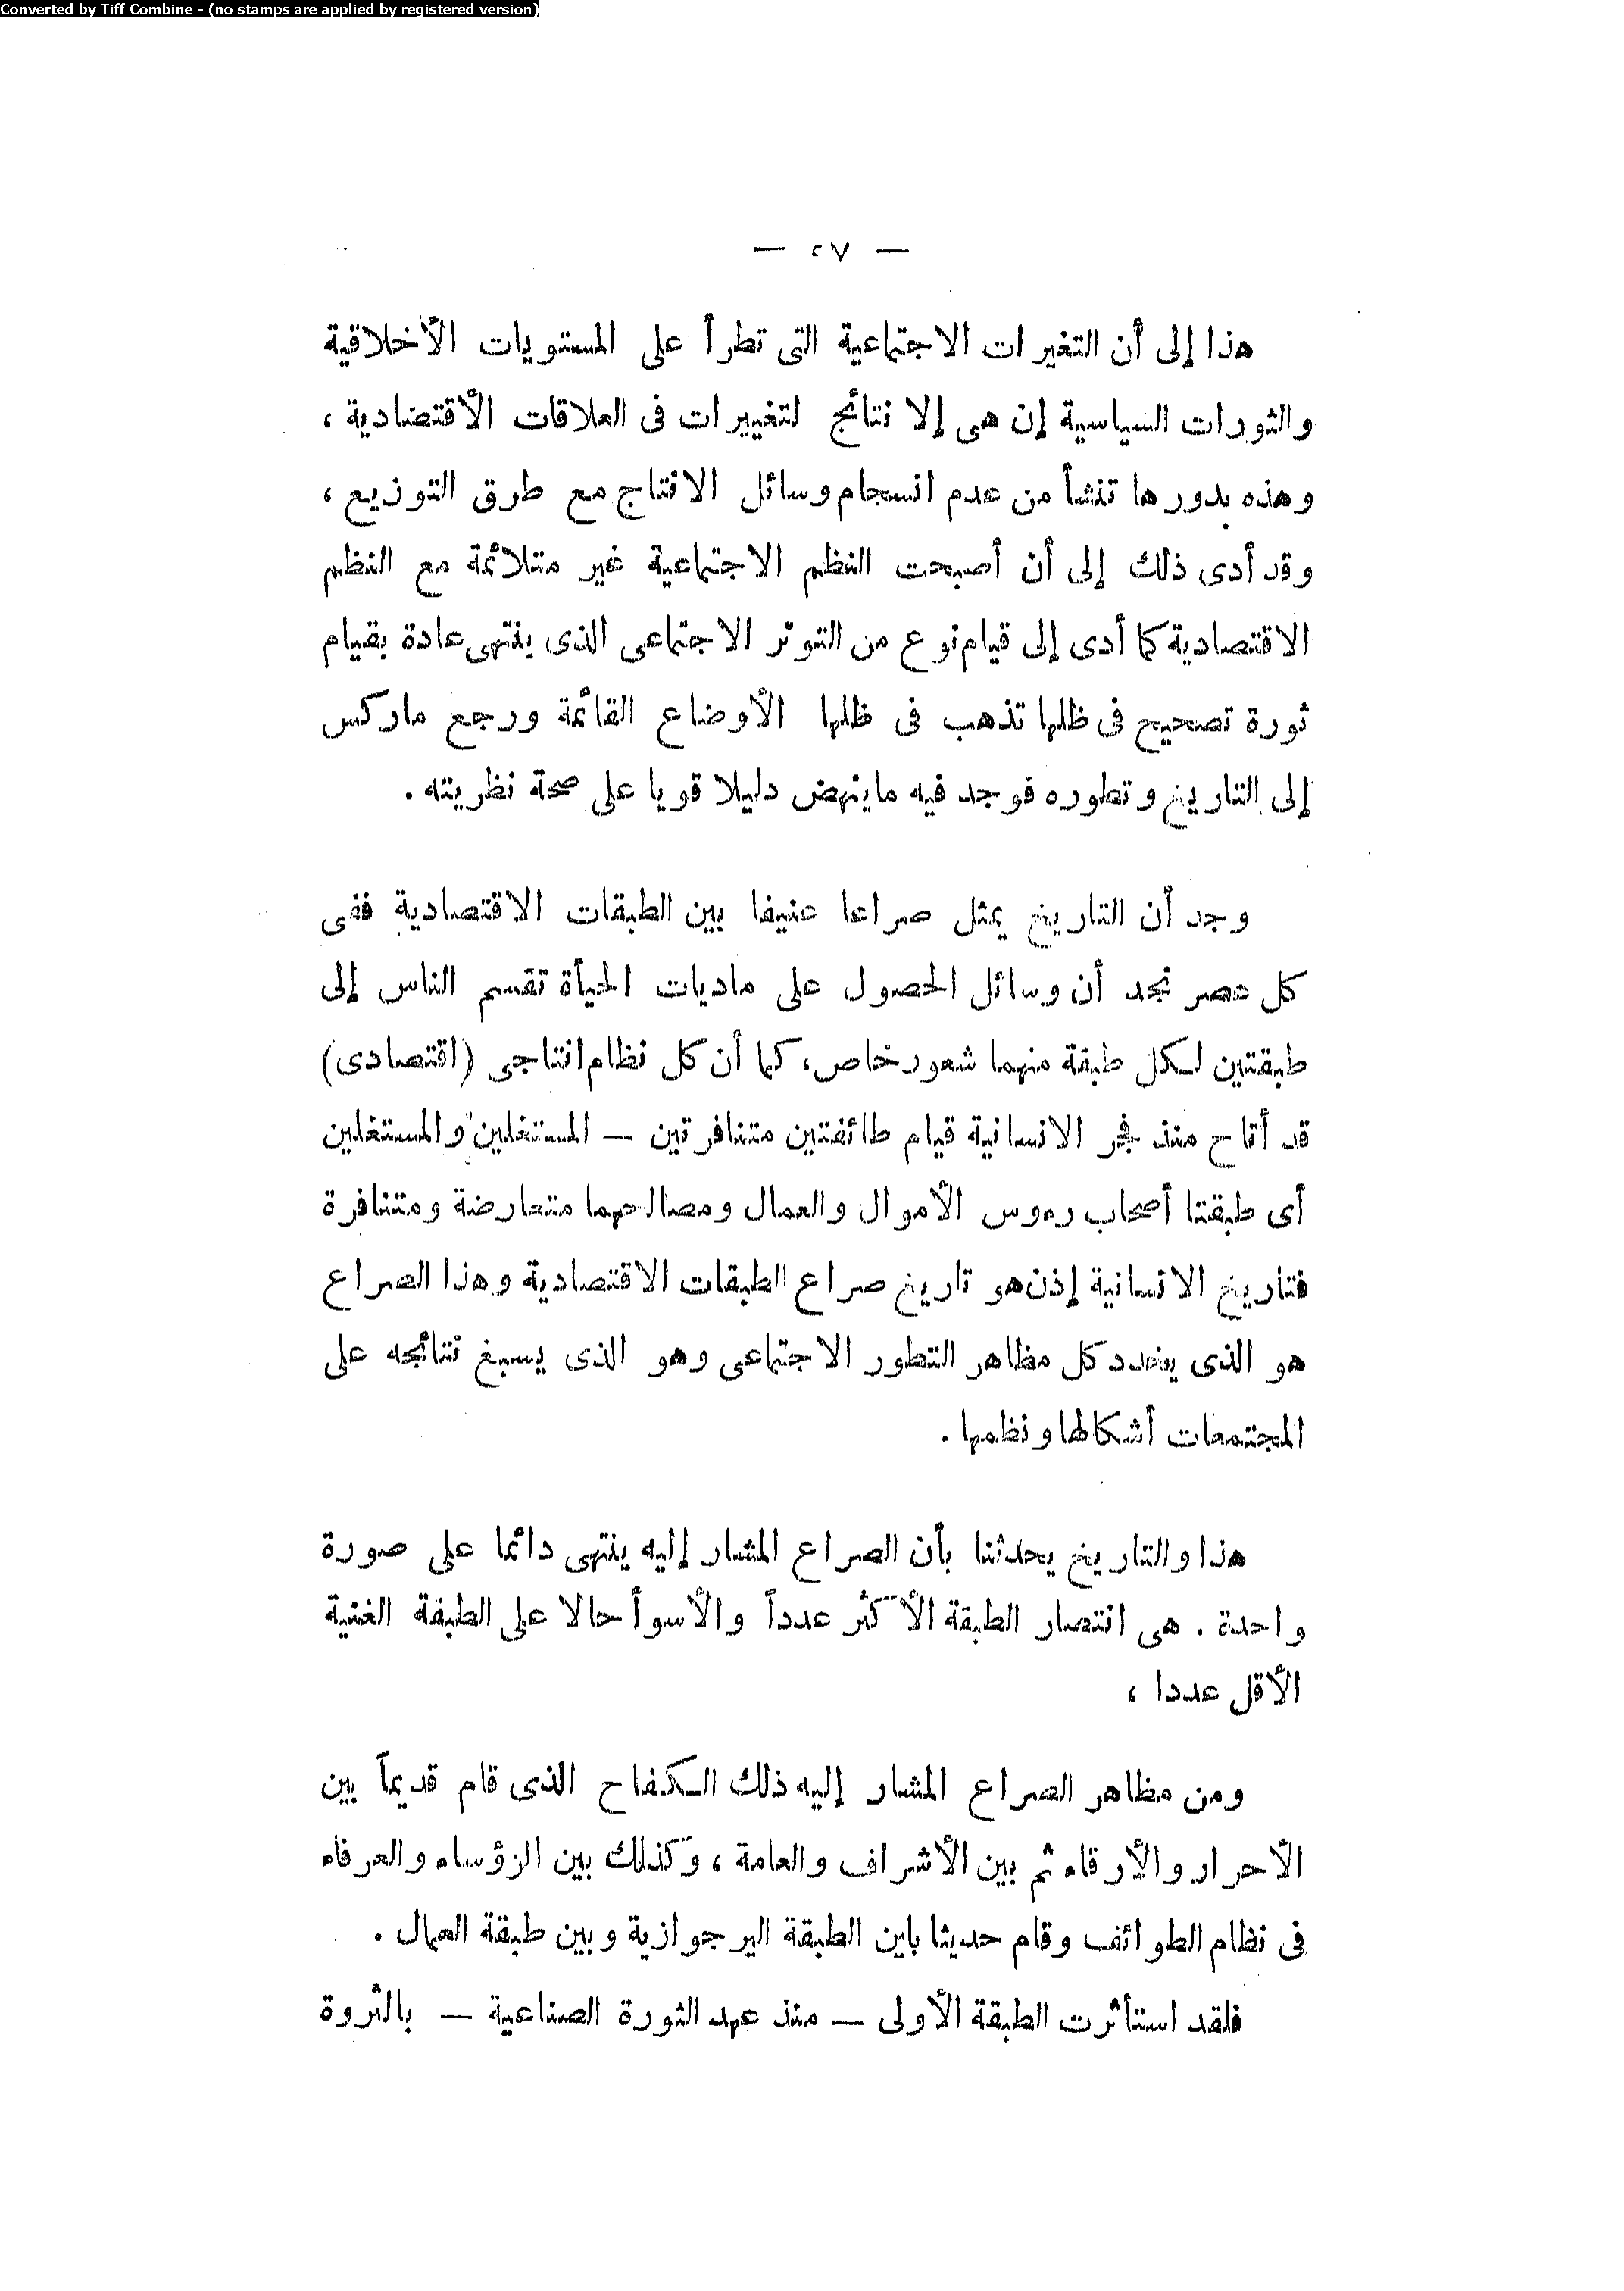 Converted by Tiff Combine - (no stamps are applied by registered version)
— ٢٧ —
هذا إلى أن التغيرات الاجتماعية التى تطرأ على المستويات الأخلاقية
والثورات السياسية إن هى إلا نتائج لتغييرات فى العلاقات الأقتصادية ،
وهذه بدورها تنشأ من عدم انسجام وسائل الانتاج مع طرق التوزيع ،
وقد أدى ذلك إلى أن أصبحت النظم الاجتماعية غير متلائمة مع النظم
الاقتصادية كما أدى إلى قيام نوع من التوتر الاجتماعى الذى ينتهى عادة بقيام
ثورة تصحيح فى ظلها تذهب فى ظلها الأوضاع القائمة ورجع ماركس
إلى التاريخ وتطوره فوجد فيه ماينهض دليلا قويا على صحة نظريته .
وجد أن التاريخ يمثل صراعا عنيفا بين الطبقات الاقتصادية ففى
كل عصر نجد أن وسائل الحصول على ماديات الحيأة تقسم الناس إلى
طبقتين لكل طبقة منهما شعور خاص، كما أن كل نظام انتاجى (اقتصادى)
قد أتاح منذ فجر الانسانية قيام طائفتين متنافرتين — المستغلين والمستغلين
أى طبقتا أصحاب رءوس الأموال والعمال ومصالحهما متعارضة ومتنافرة
فتاريخ الانسانية إذن هو تاريخ صراع الطبقات الاقتصادية وهذا الصراع
هو الذى يحدد كل مظاهر التطور الاجتماعى وهو الذى يسبغ نتائجه على
المجتمعات أشكالها ونظمها .
هذا والتاريخ يحدثنا بأن الصراع المشار إليه ينتهى دائما على صورة
واحدة . هى انتصار الطبقة الأكثر عدداً والأسوأ حالا على الطبقة الغنية
الأقل عددا ،
ومن مظاهر الصراع المشار إليه ذلك الكفاح الذى قام قديماً بين
الأحرار والأرقاء ثم بين الأشراف والعامة ، وكذلك بين الرؤساء والعرفاء
فى نظام الطوائف وقام حديثا باين الطبقة البرجوازية وبين طبقة العمال .
فلقد استأثرت الطبقة الأولى — منذ عهد الثورة الصناعية — بالثروة